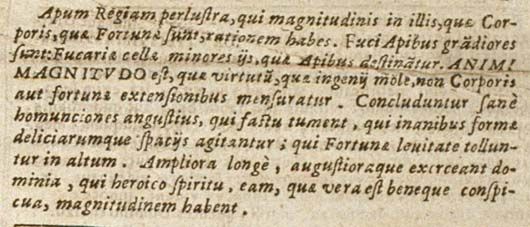 Apum Regiam perlustra, qui magnitudinis in illis, quæ Cor-
poris, quæ Fortunæ sunt, rationem habes. Fuci Apibus grãdiores
sunt: Fucariæ cellæ minores ijs, quæ Apibus destinãtur. ANIMI
MAGNITVDO est, quæ virtutũ, quæ ingenij mole, non Corporis
aut fortunæ extensionibus mensuratur. Concluduntur sanè
homunciones angustius, qui fastu tument, qui inanibus formæ
deliciarumque spatijs agitantur; qui Fortunæ leuitate tollun-
tur in altum. Ampliora longè, augustioraque exerceant do-
minia, qui heroico spiritu, eam, quæ vera est beneque conspi-
cua, magnitudinem habent.